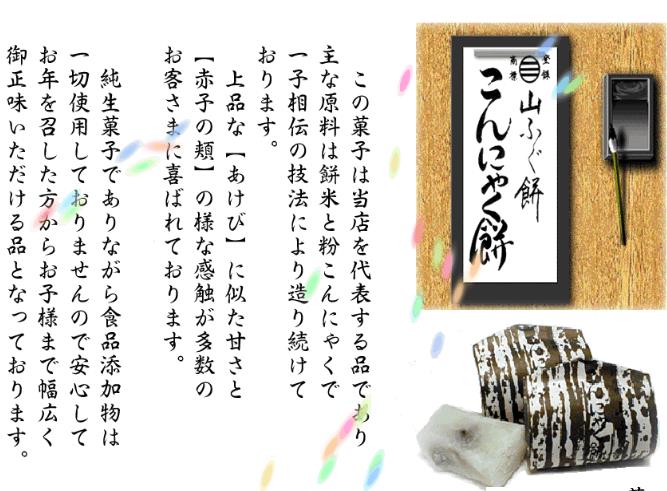 登録
商標
山ふぐ餅
こんにゃく餅
この菓子は当店を代表する品であり
主な原料は餅米と粉こんにゃくで
一子相伝の技法により造り続けて
おります。
上品な【あけび】に似た甘さと
【赤子の頬】の様な感触が多数の
お客さまに喜ばれております。
純生菓子でありながら食品添加物は
一切使用しておりませんので安心して
お年を召した方からお子様まで幅広く
御正味いただける品となっております。
こんにゃく餅